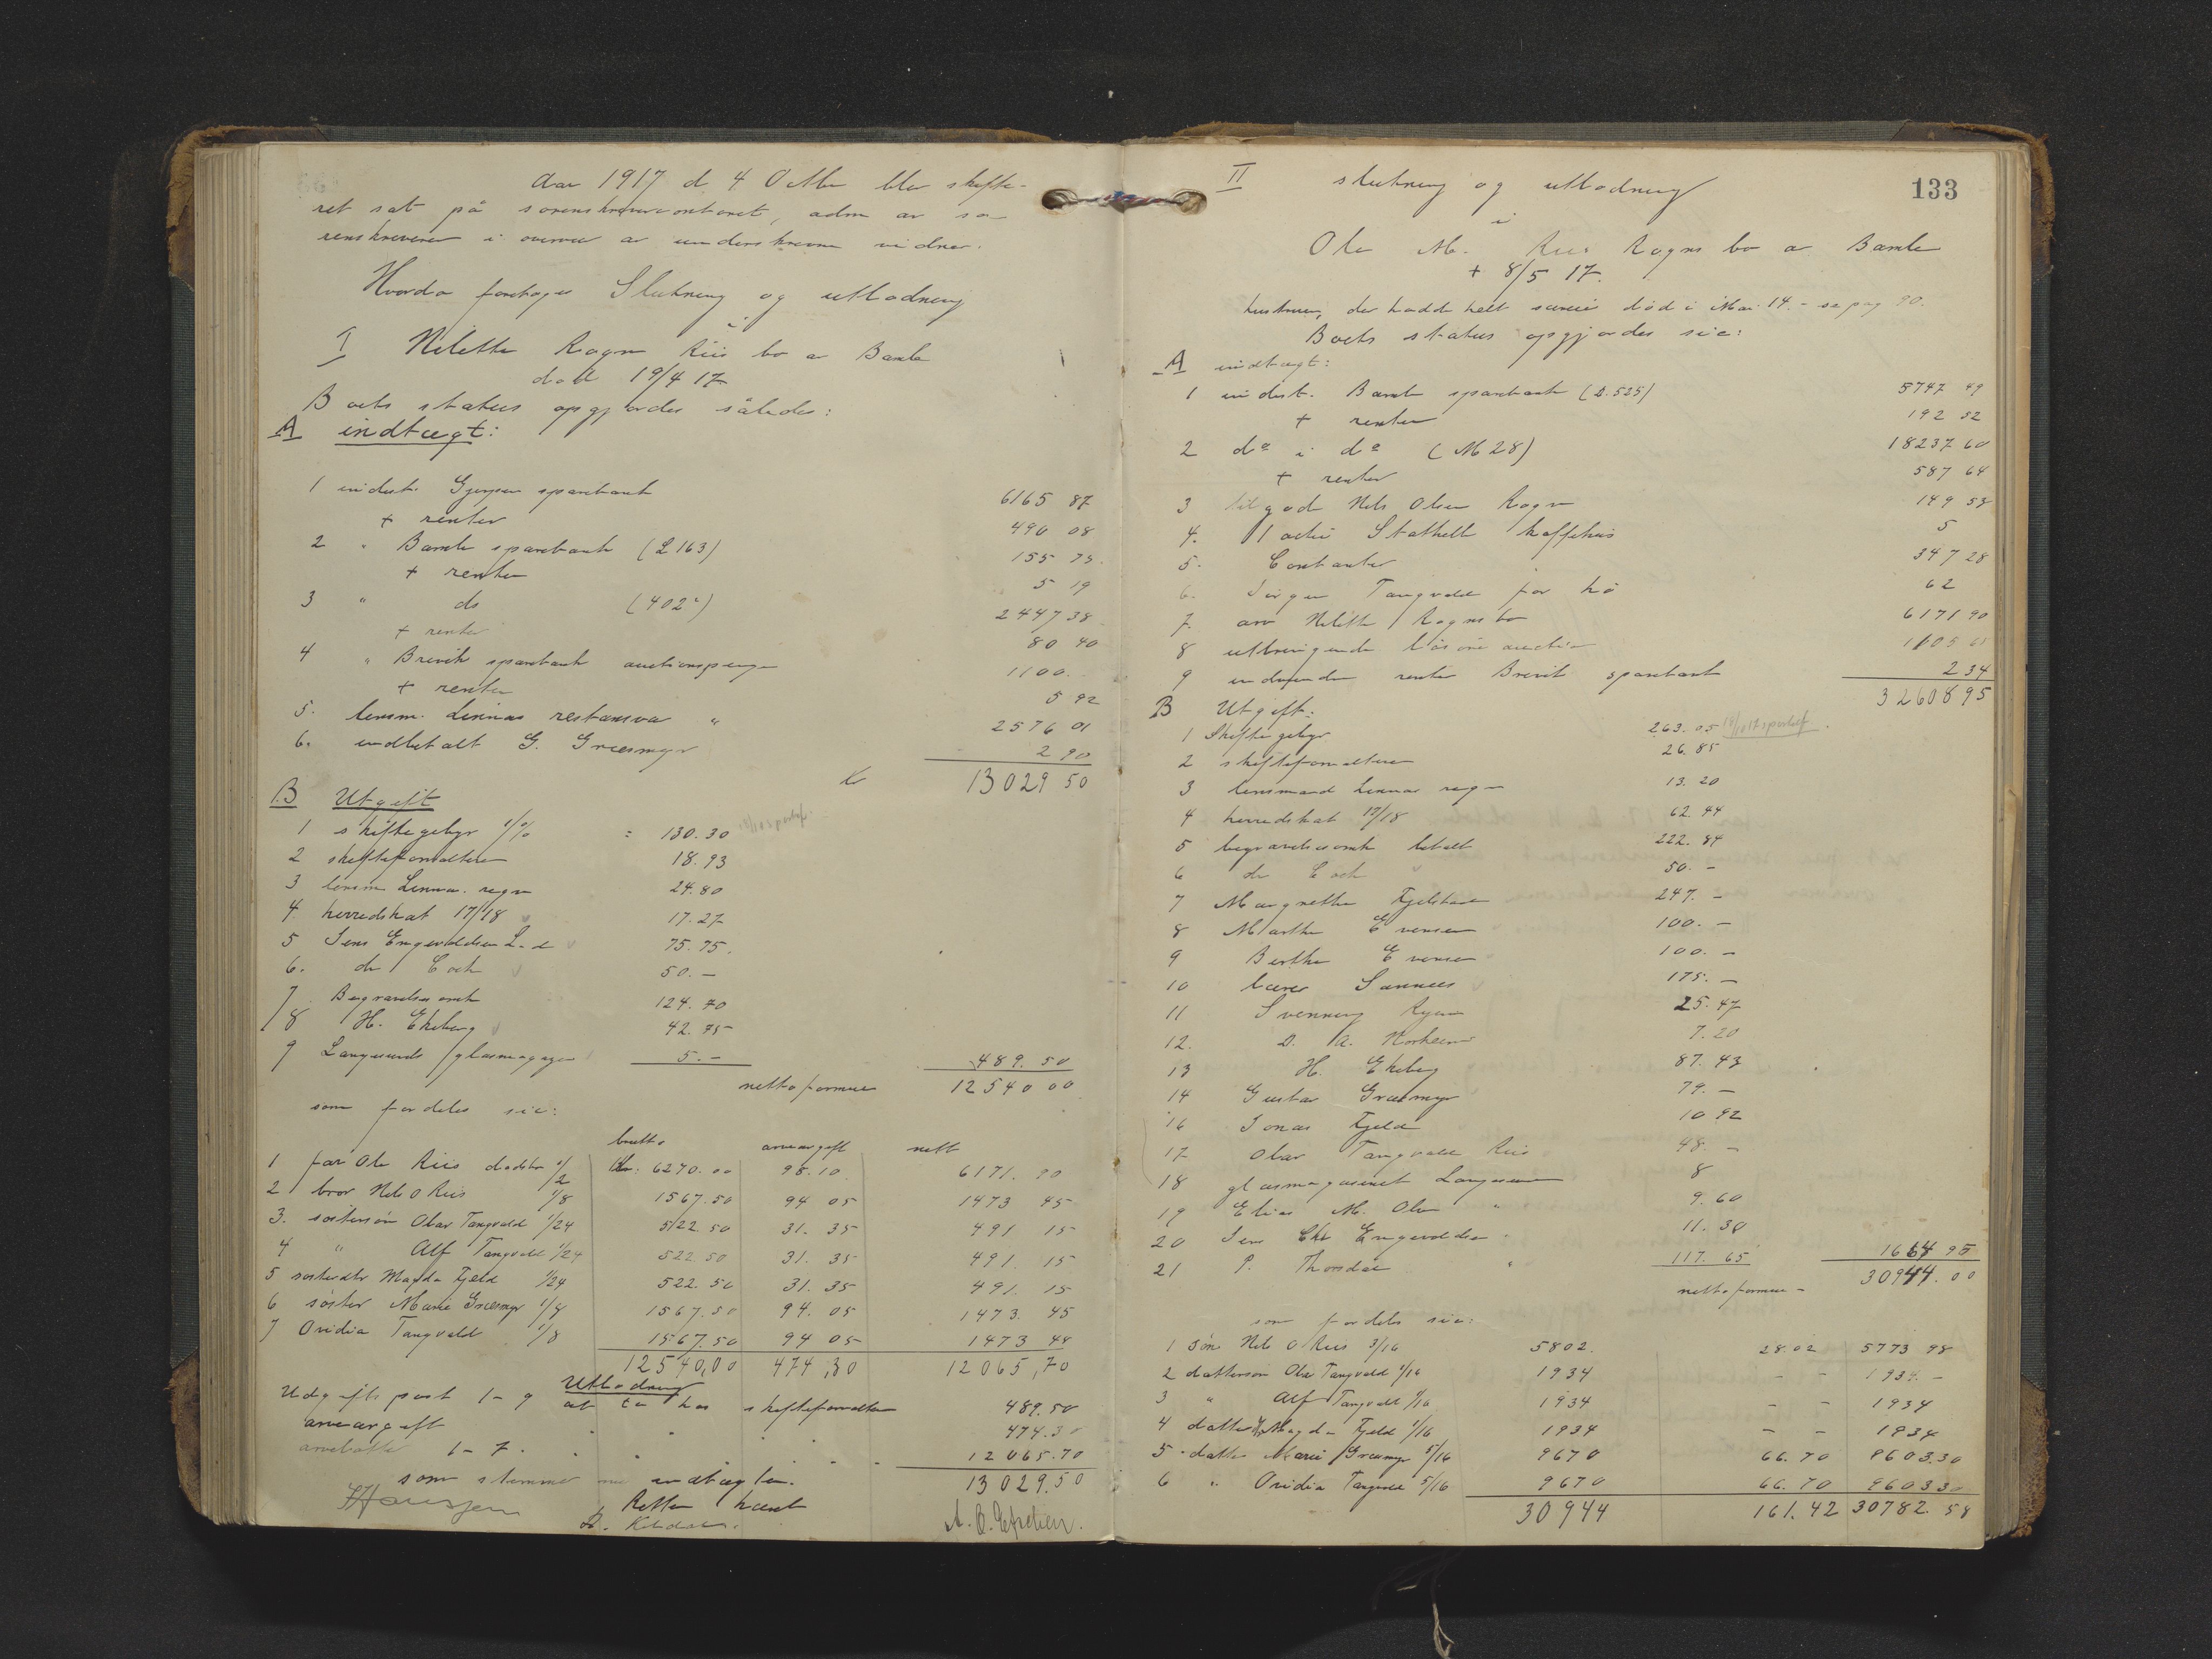 Aar 1917 d. 4 Octbr blev skifte-
ret sat på sorenskrivercontoret, adm av so-
renskriveren i overvær av underskrevne vidner.
Hvorda foretoges Slutning og utlodning
i
I Nilette Rogn Riis bo av Bamle
død 19/4 17
Boets status opgjordes således:
A indtægt:
1 indest. Gjerpen sparebank 6165 87
+ renter 490 08
2 " Bamle sparebank (L 163) 155 75
+ renter 5 19
3 " do (402) 2447 38
+ renter 80 40
4 " Brevik sparebank auctionspenge 1100.
+ renter 5 92
5. lensm. Linnaas restansva " 2576 01
6. indbetalt G. Græsmyr 2 90
Kr 13029 50
B Utgift
1 skiftegebyr 1% = 130.30
2 skifteforvalteren 18.93
3 lensm Linnaa. regn 24.80
4. herredskat 17/18 17.27
5 Jens Engevoldsen L-d 75.75.
6. dr Coch 50.-
7. Begravelsesomk 124.70
8 H. Ekeberg 42.75
9 Langesunds glasmagazin 5.- 489.50
netto formue 12540 00
som fordeles sic:
brutto arveavgift netto
1 far Ole Riis dødsbo 1/2 Kr: 6270.00 98.10 6171.90
2 bror Nils O Riis 1/8 1567.50 94 05 1473 45
3. søstersøn Olav Tangvald 1/24 522.50 31.35 491 15
4 " Alf Tangvald 1/24 522.50 31.35 491.15
5 søsterdtr Magda Fjeld 1/24 522.50 31.35 491.15
6 søster Marie Græsmyr 1/8 1567.50 94.05 1473.45
7 Ovidia Tangvald 1/8 1567.50 94 05 1473 45
12540,00 474,30 12065,70
Utlodning
Udgifts post 1-9 at ta hos skifteforvalteren 489.50
arveavgift " " " 474.30
arvelotter 1-7. " " " 12065.70
som stemmer med indtægten. 13029.50
Retten hævet
II slutning og utlodning 133
i
Ole M. Riis Rogns bo av Bamle
+ 8/5 17.
hustruen, der hadde helt særeie død i Mai 14. - se pag 90.
Boets status opgjordes sic:
A indtægt:
1 indest. Bamle sparebank (D.525) 5747 49
+ renter 192 52
2 do i do (M 28) 18237 60
+ renter 587 64
3 tilgode Nils Olsen Rogn 149 53
4. 1 actie Stathelle kaffehus 5
5. Contanter 347 28
6. Jørgen Tangvald for hø 62
7. arv Nilette Rogns bo 6171 90
8 utbringende løsøre auction 1105 65
9 indvundne renter Brevik sparebank 2 34
32608 95
B Utgift:
1 Skiftegebyr 263.05
2 skifteforvalteren 26.85
3 lensmand Linnaas regn 13.20
4 herredskat 17/18 62.44
5 begravelsesomk betalt 222.84
6 dr Coch " 50.-
7 Margrethe Fjelstad 247.-
8 Marthe Evensen 100.-
9 Berthe Evensen 100.-
10 lærer Sannæs 175.-
11 Svenning Rygn 25.47
12. D. A. 7.20
13 H. Ekeberg 87.43
14 Gustav Græsmyr 79.-
16 Jonas Fjeld 10 92
17 Olav Tangvald Riis 48.-
18 glasmagasinet Langesund 8
19 Elias M. Olsen " 9.60
20 Jens Chr Engevoldsen " 11.30
21 P. Thorsdal " 117.65 1664 95
netto formue - 30944.00
som fordeles sic:
1 søn Nils O Riis 3/16 5802. 28.02 5773 98
2 dattersøn Olav Tangvald 1/16 1934 - - 1934.-
3 " Alf Tangvald 1/16 1934 - - 1934
4 datterdtr Magda Fjeld 1/16 1934 - - 1934
5 datter Marie Græsmyr 5/16 9670 66.70 9603.30
6 " Ovidia Tangvald 5/16 9670 66.70 9603 30
30944 161.42 30782.58